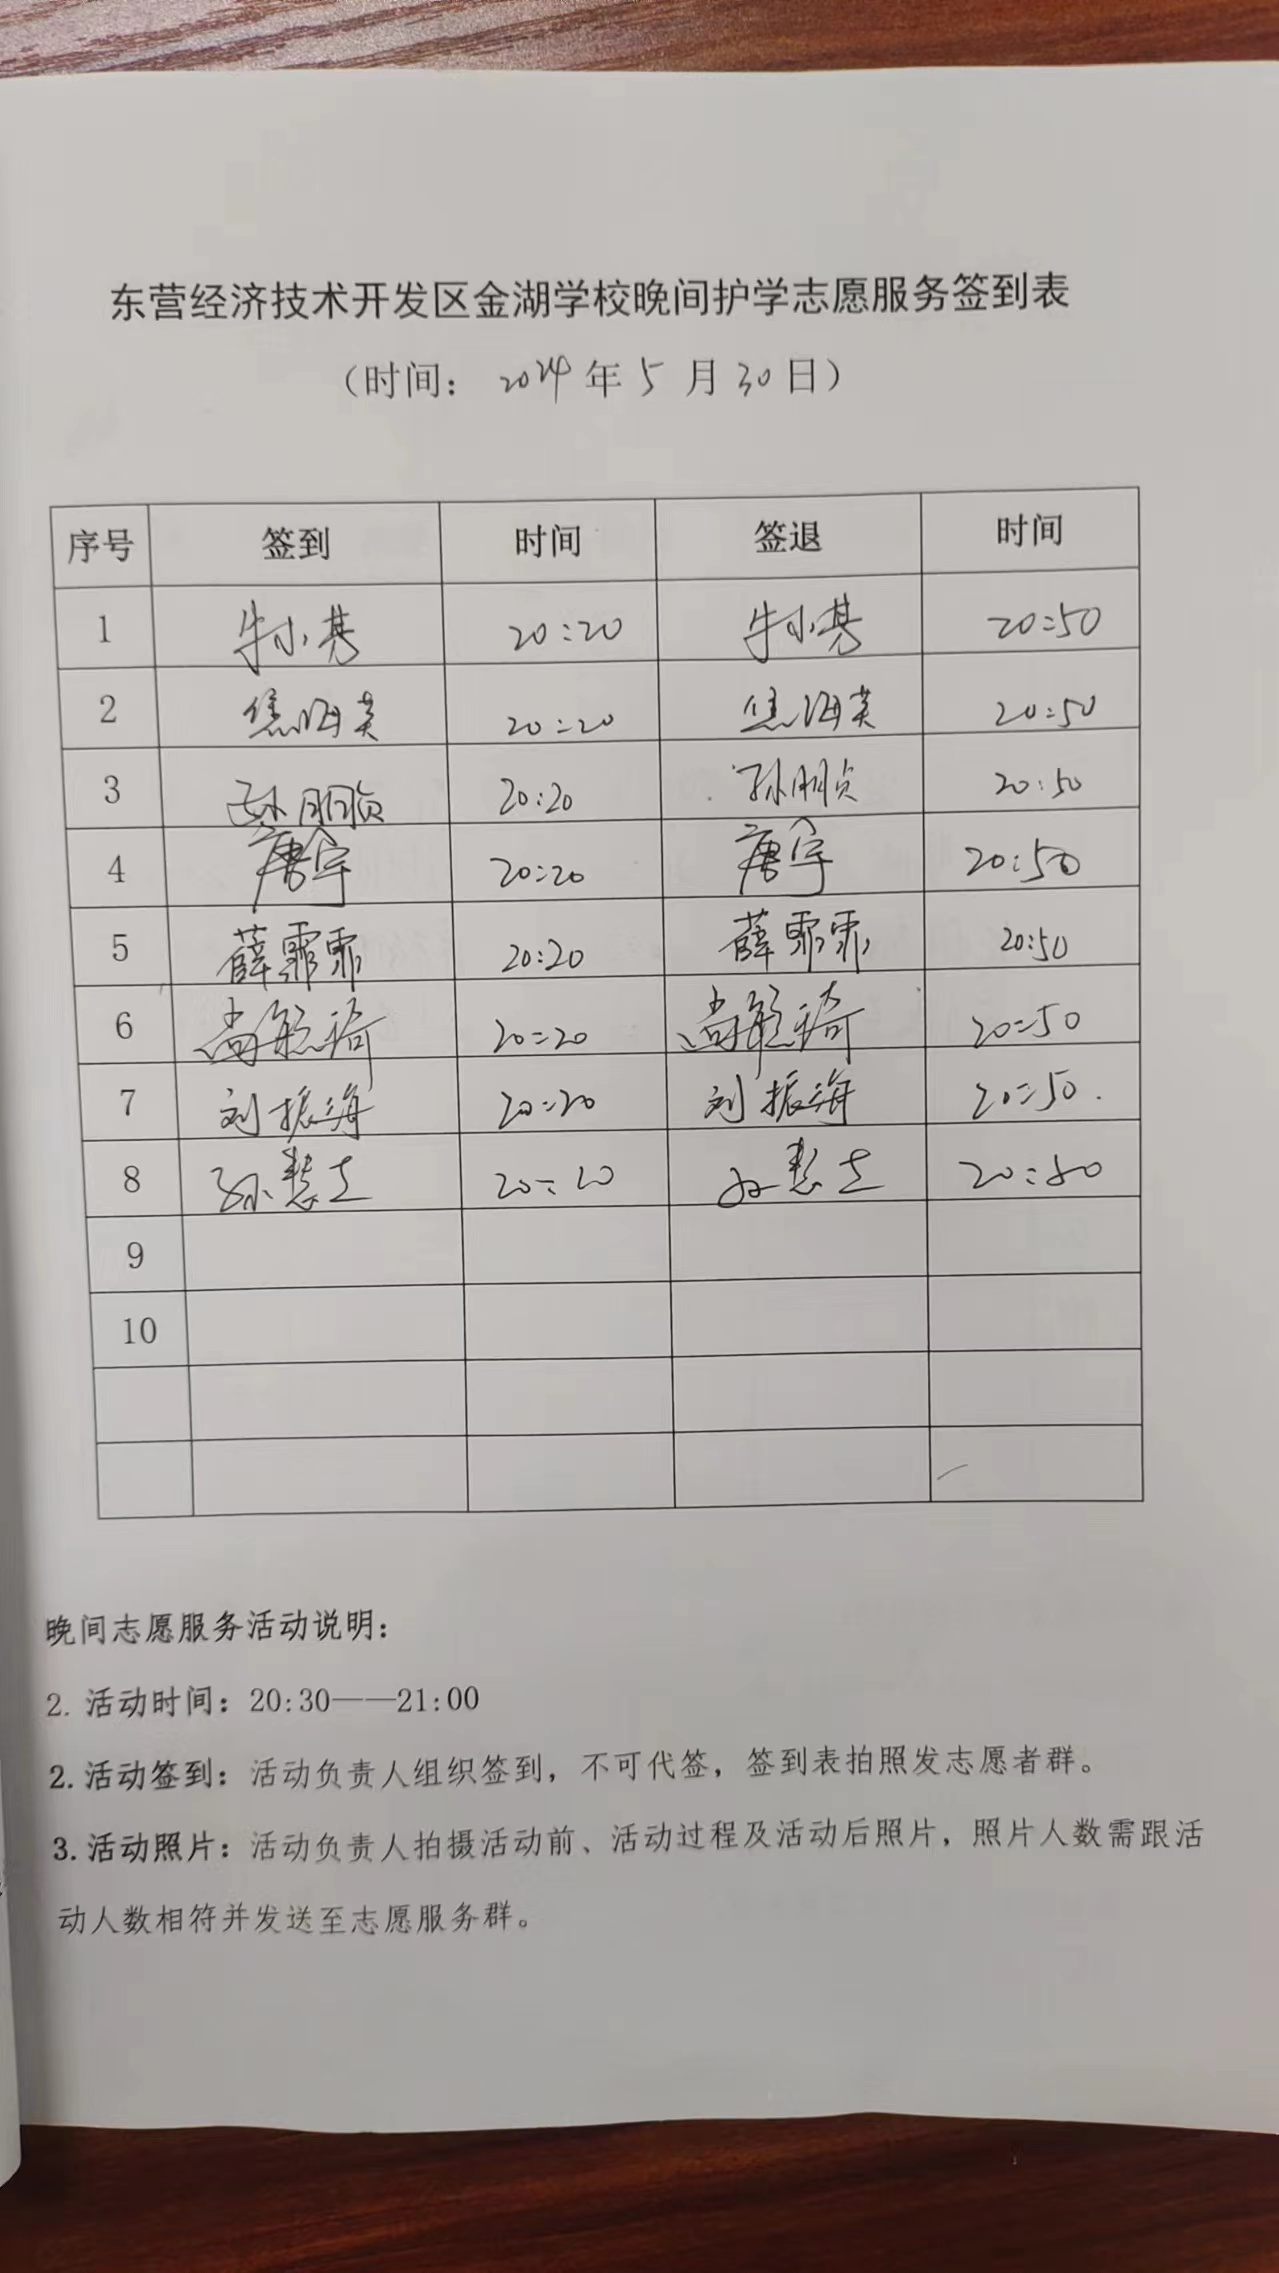 东营经济技术开发区金湖学校晚间护学志愿服务签到表
（时间：2024年5月30日）
序号 签到 时间 签退 时间
1 牛小 20:20 牛小 20:50
2 焦海英 20:20 焦海英 20:50
3 孙朋贞 20:20 孙朋贞 20:50
4 唐宇 20:20 唐宇 20:50
5 薛霏霏 20:20 薛霏霏 20:50
6 尚毓琦 20:20 尚毓琦 20:50
7 刘振海 20:20 刘振海 20:50
8 孙慧 20:20 孙慧 20:50
9
10
晚间志愿服务活动说明：
2. 活动时间：20:30——21:00
2. 活动签到：活动负责人组织签到，不可代签，签到表拍照发志愿者群。
3. 活动照片：活动负责人拍摄活动前、活动过程及活动后照片，照片人数需跟活
动人数相符并发送至志愿服务群。